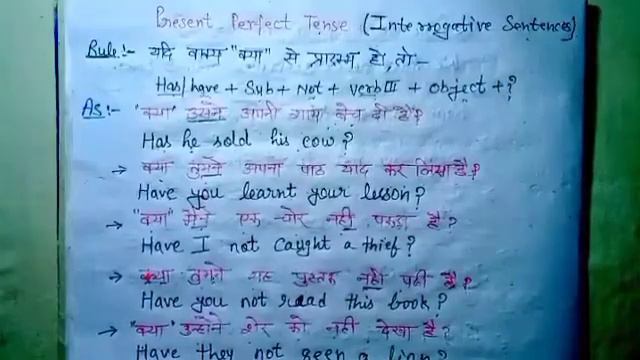 Present Perfect Tense (Interrogative Sentences)
Rule:- यदि वाक्य "क्या" से प्रारम्भ हो, तो -
Has/have + Sub + Not + verb III + object + ?
As:- "क्या" उसने अपनी गाय बेच दी है?
Has he sold his cow?
→ क्या तुमने अपना पाठ याद कर लिया है?
Have you learnt your lesson?
→ "क्या" मैंने एक चोर नहीं पकड़ा है?
Have I not caught a thief?
→ क्या तुमने यह पुस्तक नहीं पढ़ी है?
Have you not read this book?
→ "क्या" उन्होंने शेर को नहीं देखा है?
Have they not seen a lion?